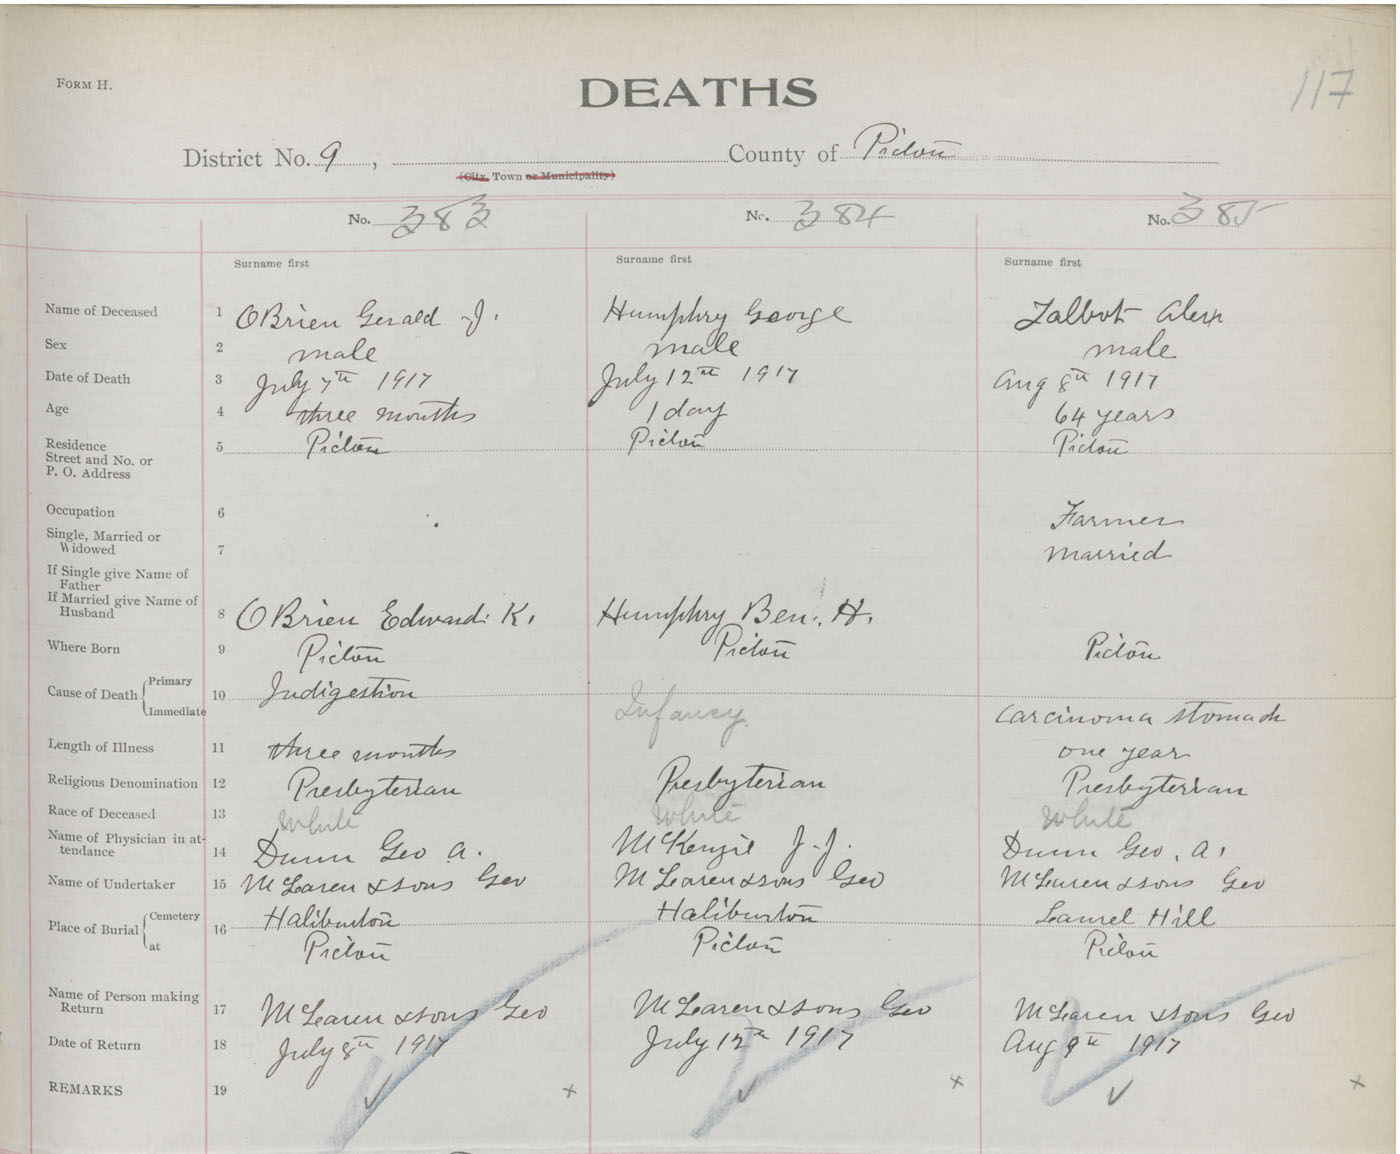 FORM H.
DEATHS
117
District No. 9, County of Pictou
(City, Town or Municipality)
No. 383 No. 384 No. 385
Surname first Surname first Surname first
Name of Deceased 1 OBrien Gerald J. Humphry George Talbot Alex
Sex 2 male male male
Date of Death 3 July 7th 1917 July 12th 1917 Aug 8th 1917
Age 4 three months 1 day 64 years
Residence
Street and No. or
P. O. Address 5 Pictou Pictou Pictou
Occupation 6 Farmer
Single, Married or
Widowed 7 married
If Single give Name of
Father
If Married give Name of
Husband 8 OBrien Edward K. Humphry Ben. H.
Where Born 9 Pictou Pictou Pictou
Cause of Death Primary 10 Indigestion
Immediate Infancy Carcinoma stomach
Length of Illness 11 three months one year
Religious Denomination 12 Presbyterian Presbyterian Presbyterian
Race of Deceased 13 White White White
Name of Physician in at-
tendance 14 Dunn Geo A. McKenzie J. J. Dunn Geo. A.
Name of Undertaker 15 McLaren & sons Geo McLaren & sons Geo McLaren & sons Geo
Place of Burial Cemetery 16 Haliburton Haliburton Laurel Hill
at Pictou Pictou Pictou
Name of Person making
Return 17 McLaren & sons Geo McLaren & sons Geo McLaren & sons Geo
Date of Return 18 July 8th 1917 July 12th 1917 Aug 9th 1917
REMARKS 19 ✓ x ✓ x ✓ x